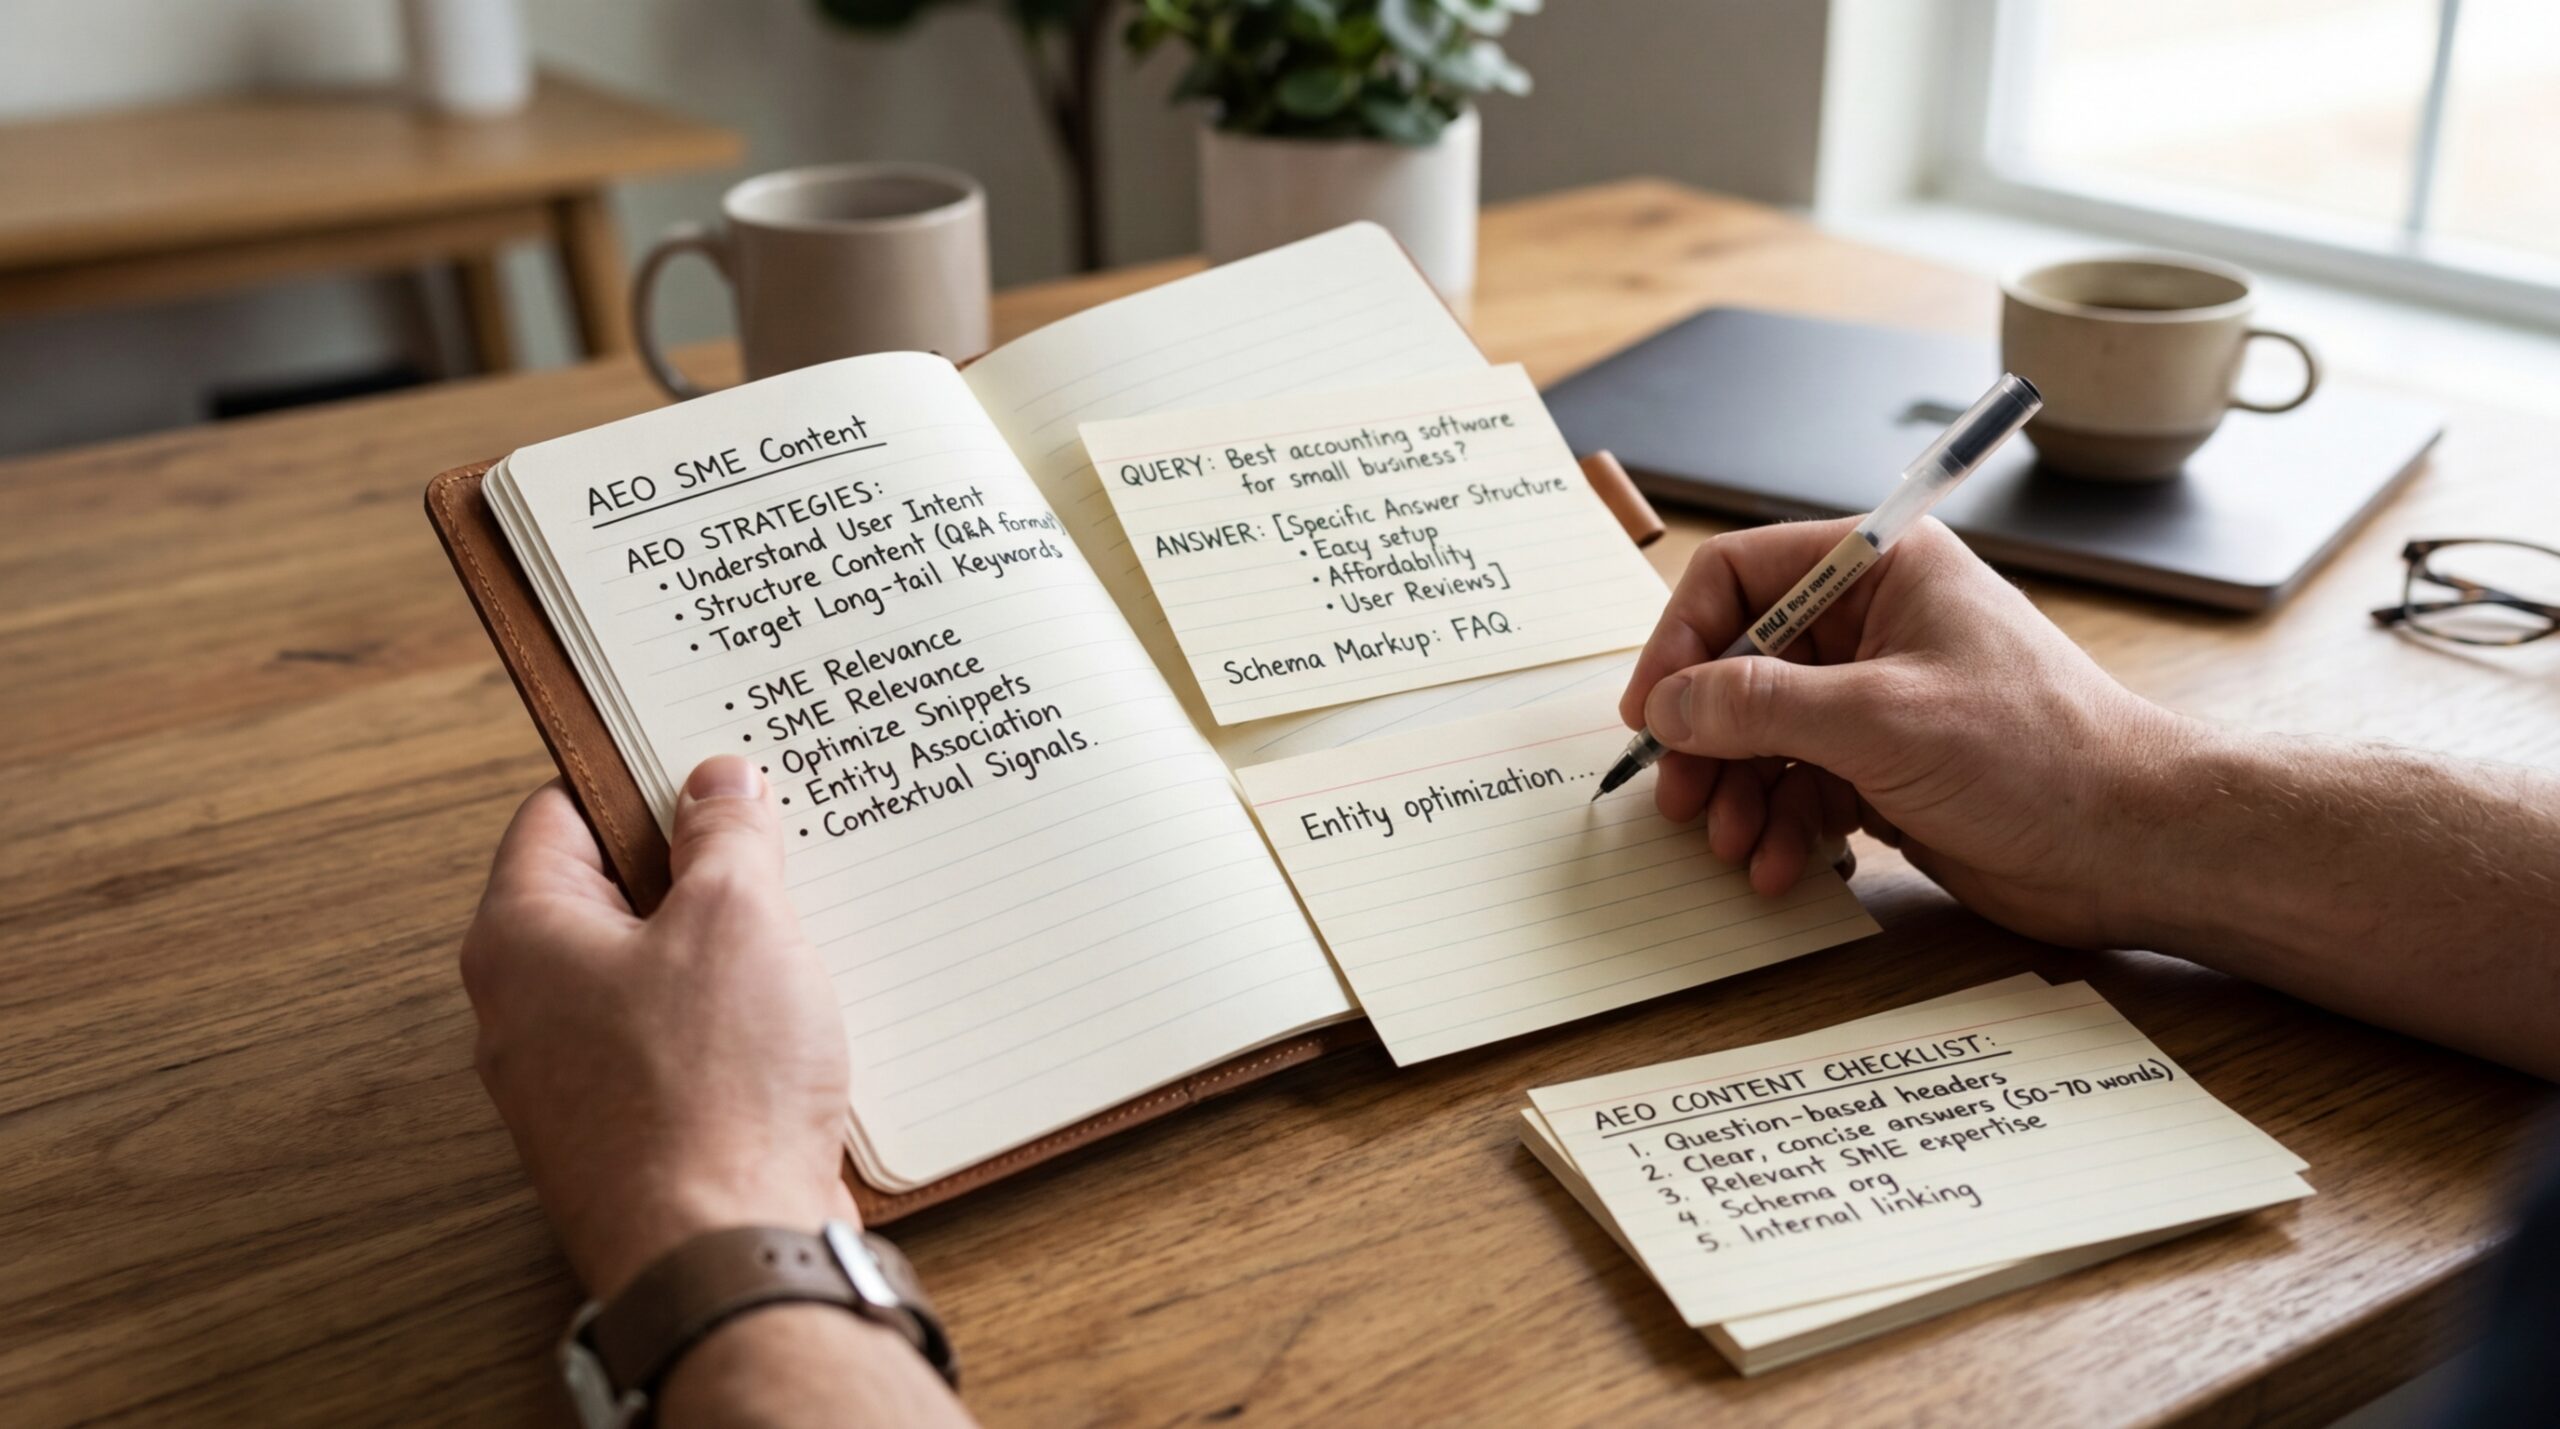 AEO SME Content
AEO STRATEGIES:
• Understand User Intent
• Structure Content (Q&A format)
• Target Long-tail Keywords
• SME Relevance
• SME Relevance
• Optimize Snippets
• Entity Association
• Contextual Signals.
QUERY: Best accounting software
for small business?
ANSWER: [Specific Answer Structure
• Eacy setup
• Affordability
• User Reviews]
Schema Markup: FAQ.
Entity optimization...
AEO CONTENT CHECKLIST:
1. Question-based headers
2. Clear, concise answers (50-70 words)
3. Relevant SME expertise
4. Schema org
5. Internal linking